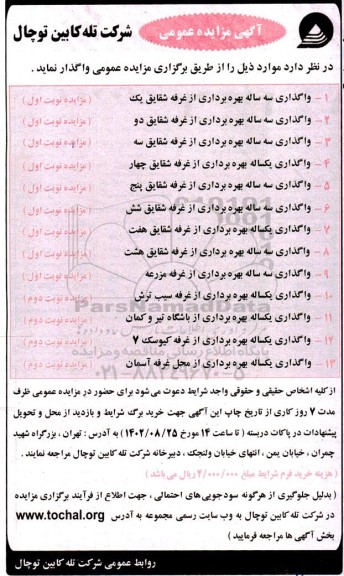 آگهی مزایده عمومی
شرکت تله کابین توچال
در نظر دارد موارد ذیل را از طریق برگزاری مزایده عمومی واگذار نماید .
۱ - واگذاری سه ساله بهره برداری از غرفه شقایق یک (مزایده نوبت اول)
۲ - واگذاری سه ساله بهره برداری از غرفه شقایق دو (مزایده نوبت اول)
۳ - واگذاری سه ساله بهره برداری از غرفه شقایق سه (مزایده نوبت اول)
۴ - واگذاری یکساله بهره برداری از غرفه شقایق چهار (مزایده نوبت اول)
۵ - واگذاری سه ساله بهره برداری از غرفه شقایق پنج (مزایده نوبت اول)
۶ - واگذاری سه ساله بهره برداری از غرفه شقایق شش (مزایده نوبت اول)
۷ - واگذاری یکساله بهره برداری از غرفه شقایق هفت (مزایده نوبت اول)
۸ - واگذاری سه ساله بهره برداری از غرفه شقایق هشت (مزایده نوبت اول)
۹ - واگذاری سه ساله بهره برداری از غرفه مزرعه (مزایده نوبت اول)
۱۰ - واگذاری یکساله بهره برداری از غرفه سیب ترش (مزایده نوبت دوم)
۱۱ - واگذاری یکساله بهره برداری از باشگاه تیر و کمان (مزایده نوبت دوم)
۱۲ - واگذاری یکساله بهره برداری از غرفه کیوسک ۷ (مزایده نوبت دوم)
۱۳ - واگذاری یکساله بهره برداری از محل غرفه آسمان (مزایده نوبت دوم)
ParsNamadData
پایگاه اطلاع رسانی مناقصه و مزایده
از کلیه اشخاص حقیقی و حقوقی واجد شرایط دعوت می شود برای حضور در مزایده عمومی ظرف
مدت ۷ روز کاری از تاریخ چاپ این آگهی جهت خرید برگ شرایط و بازدید از محل و تحویل
پیشنهادات در پاکات دربسته ( تا ساعت ۱۴ مورخ ۱۴۰۲/۰۸/۲۵ ) به آدرس : تهران ، بزرگراه شهید
چمران ، خیابان یمن ، انتهای خیابان ولنجک ، دبیرخانه شرکت تله کابین توچال مراجعه نمایند .
( هزینه خرید فرم شرایط مبلغ ۲/۰۰۰/۰۰۰ ریال می باشد )
( بدلیل جلوگیری از هرگونه سودجویی های احتمالی ، جهت اطلاع از فرآیند برگزاری مزایده
در شرکت تله کابین توچال به وب سایت رسمی مجموعه به آدرس www.tochal.org
بخش آگهی ها مراجعه فرمایید )
روابط عمومی شرکت تله کابین توچال